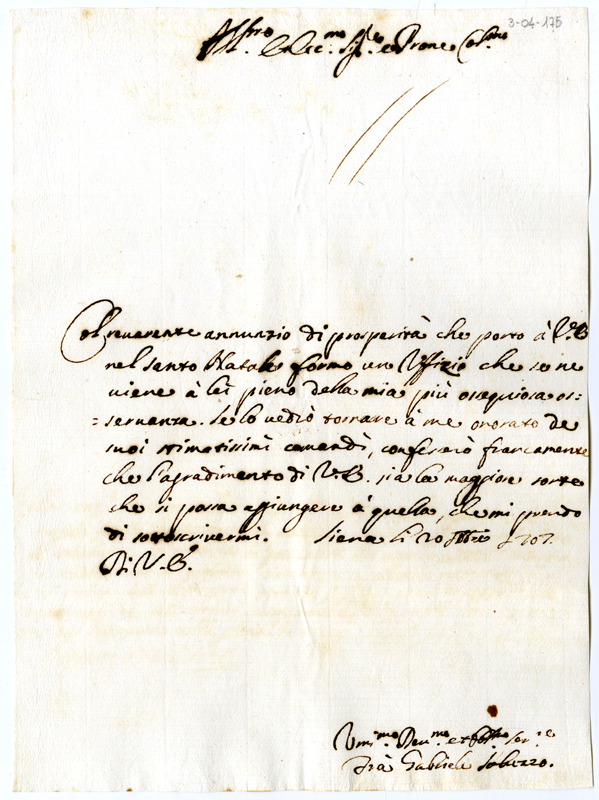 3-04-175
Ill.mo et Ecc.mo Sig.re e Prone Col.mo
Col reverente annunzio di prosperità che porto à V.E.
nel santo Natale formo un Uffizio che se ne
viene à lei pieno della mia più ossequiosa os=
=servanza. Se lo vedrò tornare à me onorato de
suoi stimatissimi comandi, confesserò francamente
che l'agradimento di V.E. sia la maggiore sorte
che si possa aggiungere à quella, che mi prendo
di sottoscrivermi. Siena li 20 Xbre 1707.
Di V.E.
Umi.mo Dev.mo et Obb.mo Ser.re
Frà Gabriele